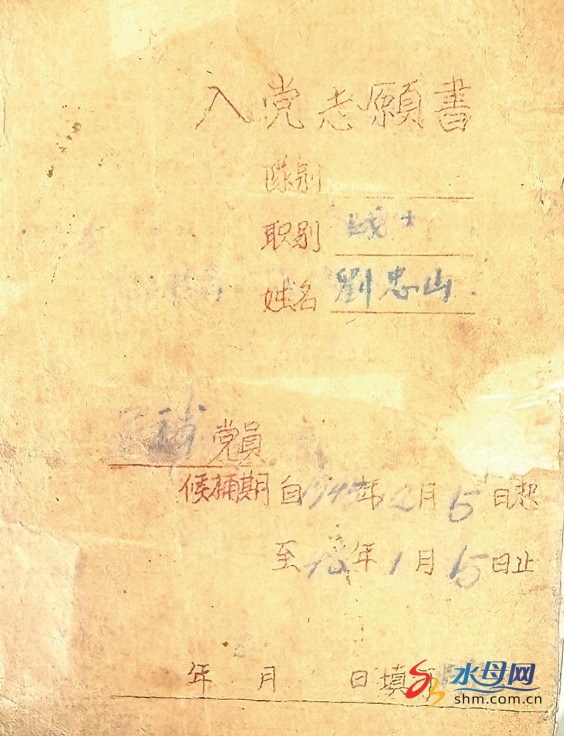 入党志願書
隊别
职别 战士
姓名 劉忠山
党員
候補期自194 年2月15日起
至 年1月15日止
年 月 日填
水母网
shm.com.cn